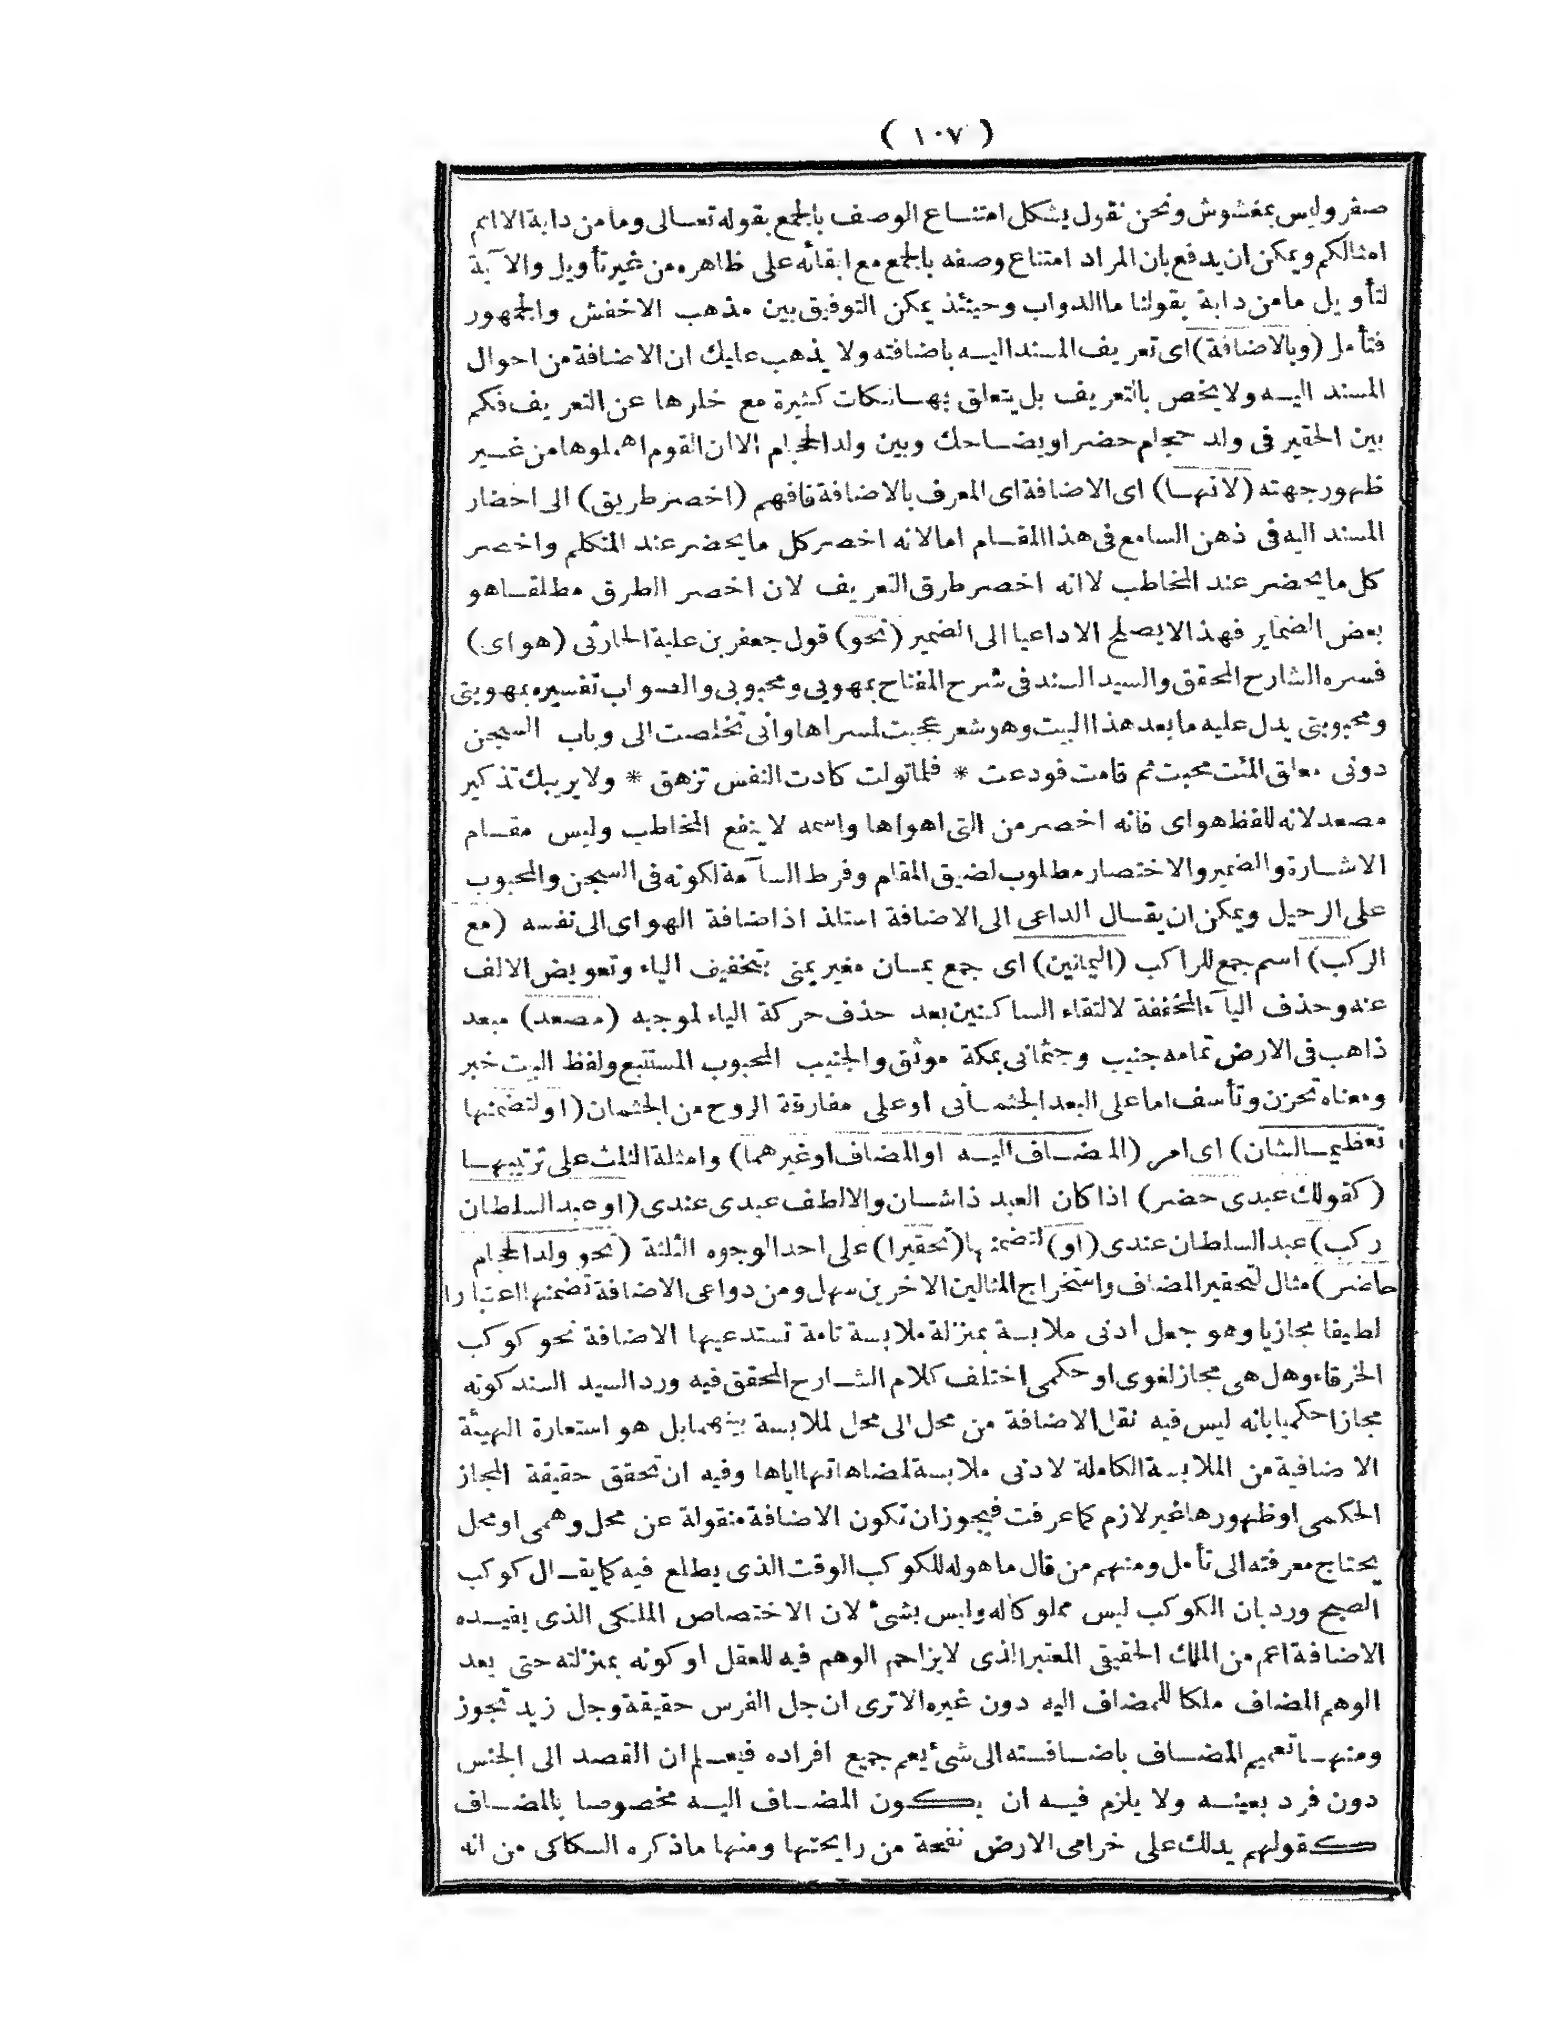 ( ١٠٧ )
صفر وليس بمغشوش ونحن نقول يشكل امتناع الوصف بالجمع بقوله تعالى وما من دابة الا امم
امثالكم ويمكن ان يدفع بان المراد امتناع وصفه بالجمع مع ابقائه على ظاهره من غير تأويل والآية
لتأويل ما من دابة بقولنا ما الدواب وحينئذ يمكن التوفيق بين مذهب الاخفش والجمهور
فتأمل (وبالاضافة) اى تعريف المسند اليه باضافته ولا يذهب عليك ان الاضافة من احوال
المسند اليه ولا يخص بالتعريف بل يتعلق بها نكات كثيرة مع خلوها عن التعريف فكم
بين الحقير فى ولد حجام حضر او يضاحك وبين ولد الحجام الا ان القوم اهملوها من غير
ظهور جهته (لانها) اى الاضافة اى المعرف بالاضافة فافهم (اخصر طريق) الى احضار
المسند اليه فى ذهن السامع فى هذا المقام اما لانه اخصر كل ما يحضر عند المتكلم واخصر
كل ما يحضر عند المخاطب لا انه اخصر طرق التعريف لان اخصر الطرق مطلقا هو
بعض الضماير فهذا لا يصلح الا داعيا الى الضمير (نحو) قول جعفر بن علبة الحارثى (هواى)
فسره الشارح المحقق والسيد السند فى شرح المفتاح بمهويى ومحبوبى والصواب تفسيره بمهويتى
ومحبوبتى يدل عليه ما بعد هذا البيت وهو شعر عجبت لمسراها وانى تخلصت الى وباب السجن
دونى مغلق المئت محيت ثم قامت فودعت * فلما تولت كادت النفس تزهق * ولا يريبك تذكير
مصعد لانه للفظ هواى فانه اخصر من التى اهواها واسمه لا ينفع المخاطب وليس مقام
الاشارة والضمير والاختصار مطلوب لضيق المقام وفرط السآمة لكونه فى السجن والمحبوب
على الرحيل ويمكن ان يقال الداعى الى الاضافة استلذ اذ اضافة الهواى الى نفسه (مع
الركب) اسم جمع للراكب (اليمانين) اى جمع يمان مغير يمنى بتخفيف الياء وتعويض الالف
عنه وحذف اليآء المخففة لالتقاء الساكنين بعد حذف حركة الياء لموجبه (مصعد) مبعد
ذاهب فى الارض تمامه جنيب وجثمانى بمكة موثق والجنيب المحبوب المستتبع ولفظ البيت خبر
ومعناه تحزن وتأسف اما على البعد الجثمانى او على مفارقة الروح من الجثمان (او لتضمنها
تعظيما لشان) اى امر (المضاف اليه او المضاف او غيرهما) وامثلة الثلث على ترتيبها
(كقولك عبدى حضر) اذا كان العبد ذا شان والالطف عبدى عندى (او عبد السلطان
ركب) عبد السلطان عندى (او) لتضمنها (تحقيرا) على احد الوجوه الثلثة (نحو ولد الحجام
حاضر) مثال لتحقير المضاف واستخراج المثالين الاخرين سهل ومن دواعى الاضافة تضمنها اعتبارا
لطيفا مجازيا وهو جعل ادنى ملابسة بمنزلة ملابسة تامة تستدعيها الاضافة نحو كوكب
الخرقاء وهل هى مجاز لغوى او حكمى اختلف كلام الشارح المحقق فيه ورد السيد السند كونه
مجازا حكميا بانه ليس فيه نقل الاضافة من محل الى محل لملابسة بينهما بل هو استعارة الهيئة
الاضافية من الملابسة الكاملة لادنى ملابسة لمضاهاتها اياها وفيه ان تحقق حقيقة المجاز
الحكمى او ظهورها غير لازم كما عرفت فيجوز ان تكون الاضافة منقولة عن محل وهمى او محل
يحتاج معرفته الى تأمل ومنهم من قال ما هوله للكوكب الوقت الذى يطلع فيه كما يقال كوكب
الصبح ورد بان الكوكب ليس مملوكا له وليس بشئ لان الاختصاص الملكى الذى يفيده
الاضافة اعم من الملك الحقيقى المعتبر الذى لا يزاحم الوهم فيه للعقل او كونه بمنزلته حتى يعد
الوهم المضاف ملكا للمضاف اليه دون غيره الا ترى ان جل الفرس حقيقة وجل زيد تجوز
ومنها تعميم المضاف باضافته الى شئ يعم جميع افراده فيعلم ان القصد الى الجنس
دون فرد بعينه ولا يلزم فيه ان يكون المضاف اليه مخصوصا بالمضاف
كقولهم يدلك على خزامى الارض نفحة من رايحتها ومنها ما ذكره السكاكى من انه